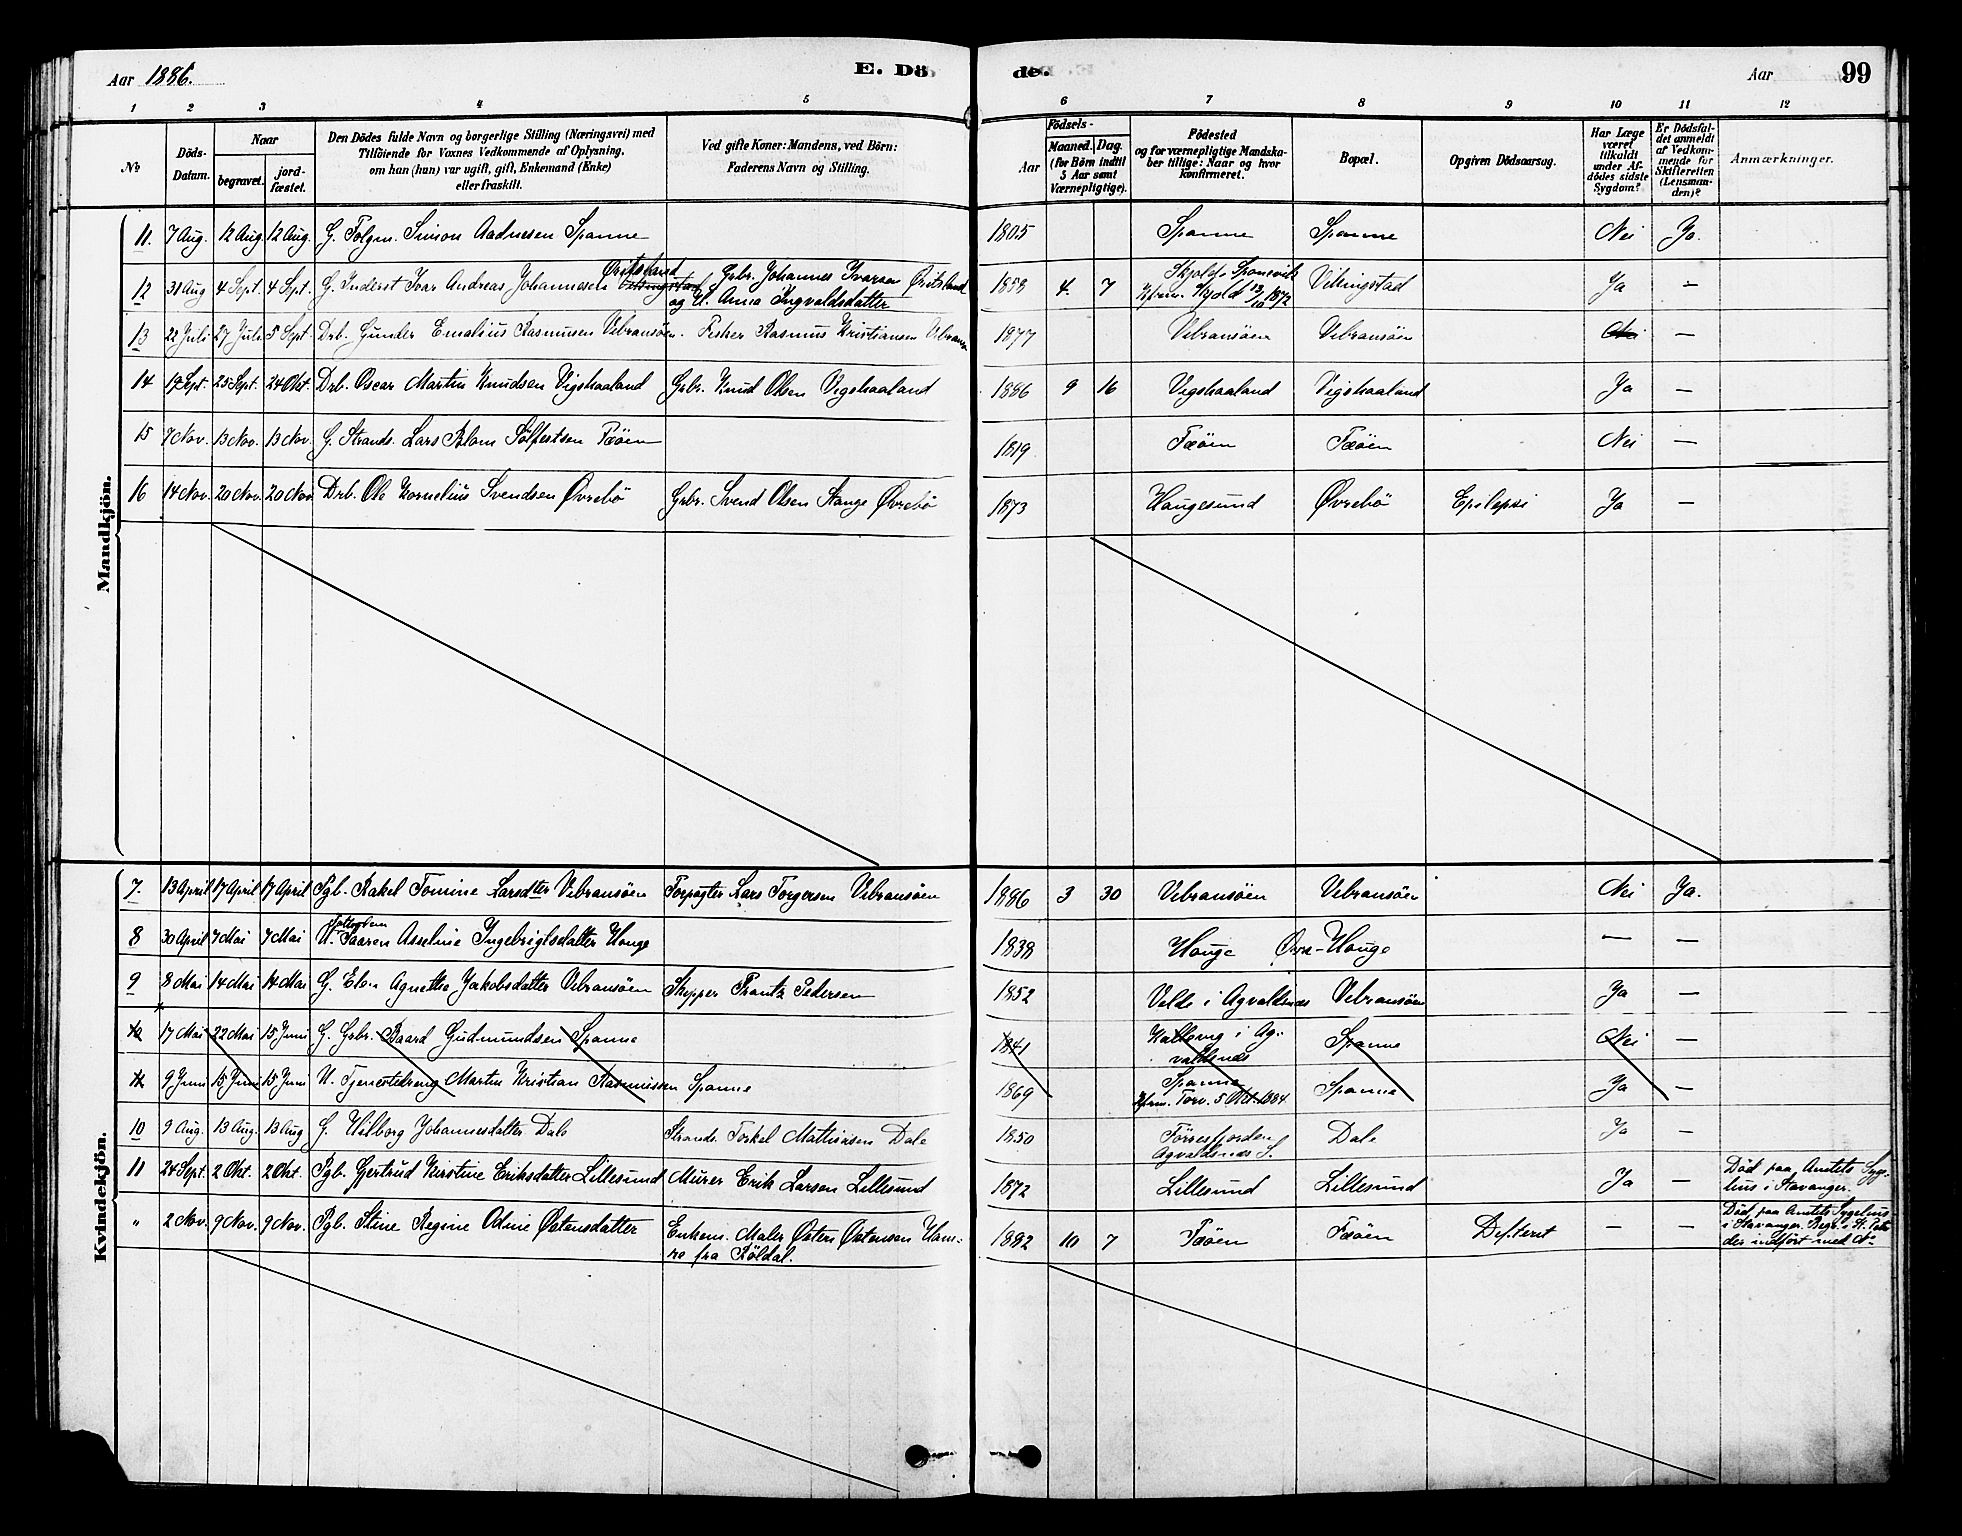 Aar 1886.
E. Dö
de.
Aar
99
1 2 3 4 5 6 7 8 9 10 11 12
No
Döds-Datum.
Naar
begravet.
jord-fæstet.
Den Dödes fulde Navn og borgerlige Stilling (Næringsvei) med
Tilföiende for Voxnes Vedkommende af Oplysning,
om han (hun) var ugift, gift, Enkemand (Enke)
eller fraskilt.
Ved gifte Koner: Mandens, ved Börn:
Faderens Navn og Stilling.
Födsels-
Aar
Maaned. Dag.
(for Börn indtil
5 Aar samt
Værnepligtige).
Födested
og for værnepligtige Mandska-
ber tillige: Naar og hvor
konfirmeret.
Bopæl.
Opgiven Dödsaarsag.
Har Læge
været
tilkaldt
under Af-
dödes sidste
Sygdom?
Er Dödsfal-
det anmeldt
af Vedkom-
mende for
Skifteretten
(Lensman-
den)?
Anmærkninger.
Mandkjön.
11. 7 Aug. 12 Aug. 12 Aug. G. Folgm. Simon Aadnesen Spanne 1805 Spanne Spanne Nei Ja.
12 31 Aug 4 Sept. 4 Sept. G. Inderst Ivar Andreas Johannesen Vikingstad Øritsland Grbr. Johannes Ivarsen Øritsland
og U. Anna Ingvaldsdatter 1858 4. 7 Skjold. Sponevik
Kfrm. Skjold 13/10 1872 Vikingstad Ja –
13 22 Juli 27 Juli 5 Sept. Drb. Gunder Emalius Rasmusen Vibransöen. Fisker Rasmus Kristiansen Vibransö 1877 Vibransöen Vibransöen Nei –
14 19 Sept. 25 Sept. 24 Okt. Drb. Oscar Martin Knudsen Vigshaaland Grbr. Knud Olsen Vigshaaland 1886 9 16 Vigshaaland Vigshaaland Ja –
15 7 Nov. 13 Nov. 13 Nov. G. Strands. Lars Blom Sölfestsen Fæöen 1819 Fæöen Fæöen Nei –
16 14 Nov. 20 Nov. 20 Nov. Drb. Ole Kornelius Svendsen Øvrebö Grbr. Svend Olsen Stange Øvrebö 1873 Haugesund Øvrebö Epilepsi Ja –
Kvindekjön.
7. 13 April 17 April 17 April Pgb. Rakel Tomine Larsdter Vibransöen Forpagter Lars Torgersen Vibransöen 1886 3 30 Vibransöen Vibransöen Nei Ja.
8 30 April 7 Mai 7 Mai U. Saaren Asseline Ingebrigtsdatter Hauge 1838 Hauge Øvre-Hauge – –
9 8 Mai 14 Mai 14 Mai G. Elen Agnethe Jakobsdatter Vibransöen Skipper Frantz Pedersen 1852 Velde i Agvaldsnæs Vibransöen Ja –
10 17 Mai 22 Mai 15 Juni G. Grbr. Baard Gudmundsen Spanne 1841 Kallevig i Ag-
valdsnæs Spanne Nei –
11 9 Juni 15 Juni 15 Juni U. Tjenestedreng Martin Kristian Rasmussen Spanne 1869 Spanne
Kfrm. Torv. 5 Okt. 1884. Spanne Ja –
10 9 Aug. 13 Aug. 13 Aug G. Wilborg Johannesdatter Dale Strands. Torkel Mathisen Dale 1850 Förresfjorden
Agvaldsnæs S. Dale Ja –
11 24 Sept. 2 Okt. 2 Okt. Pgb. Gjertrud Kirstine Eriksdatter Lillesund Murer Erik Larsen Lillesund 1872 Lillesund Lillesund Ja – Död paa Amtets Syge-
hus i Stavanger.
" 2 Nov. 9 Nov. 9 Nov. Pgb. Stine Regine Odine Østensdatter Enkem. Maler Østen Østensen Ham-
re fra Röldal. 1882 10 7 Fæöen Fæöen Difterit – – Död paa Amtets Sygehus
i Stavanger. Begr. i St. Petri
der indfört med No